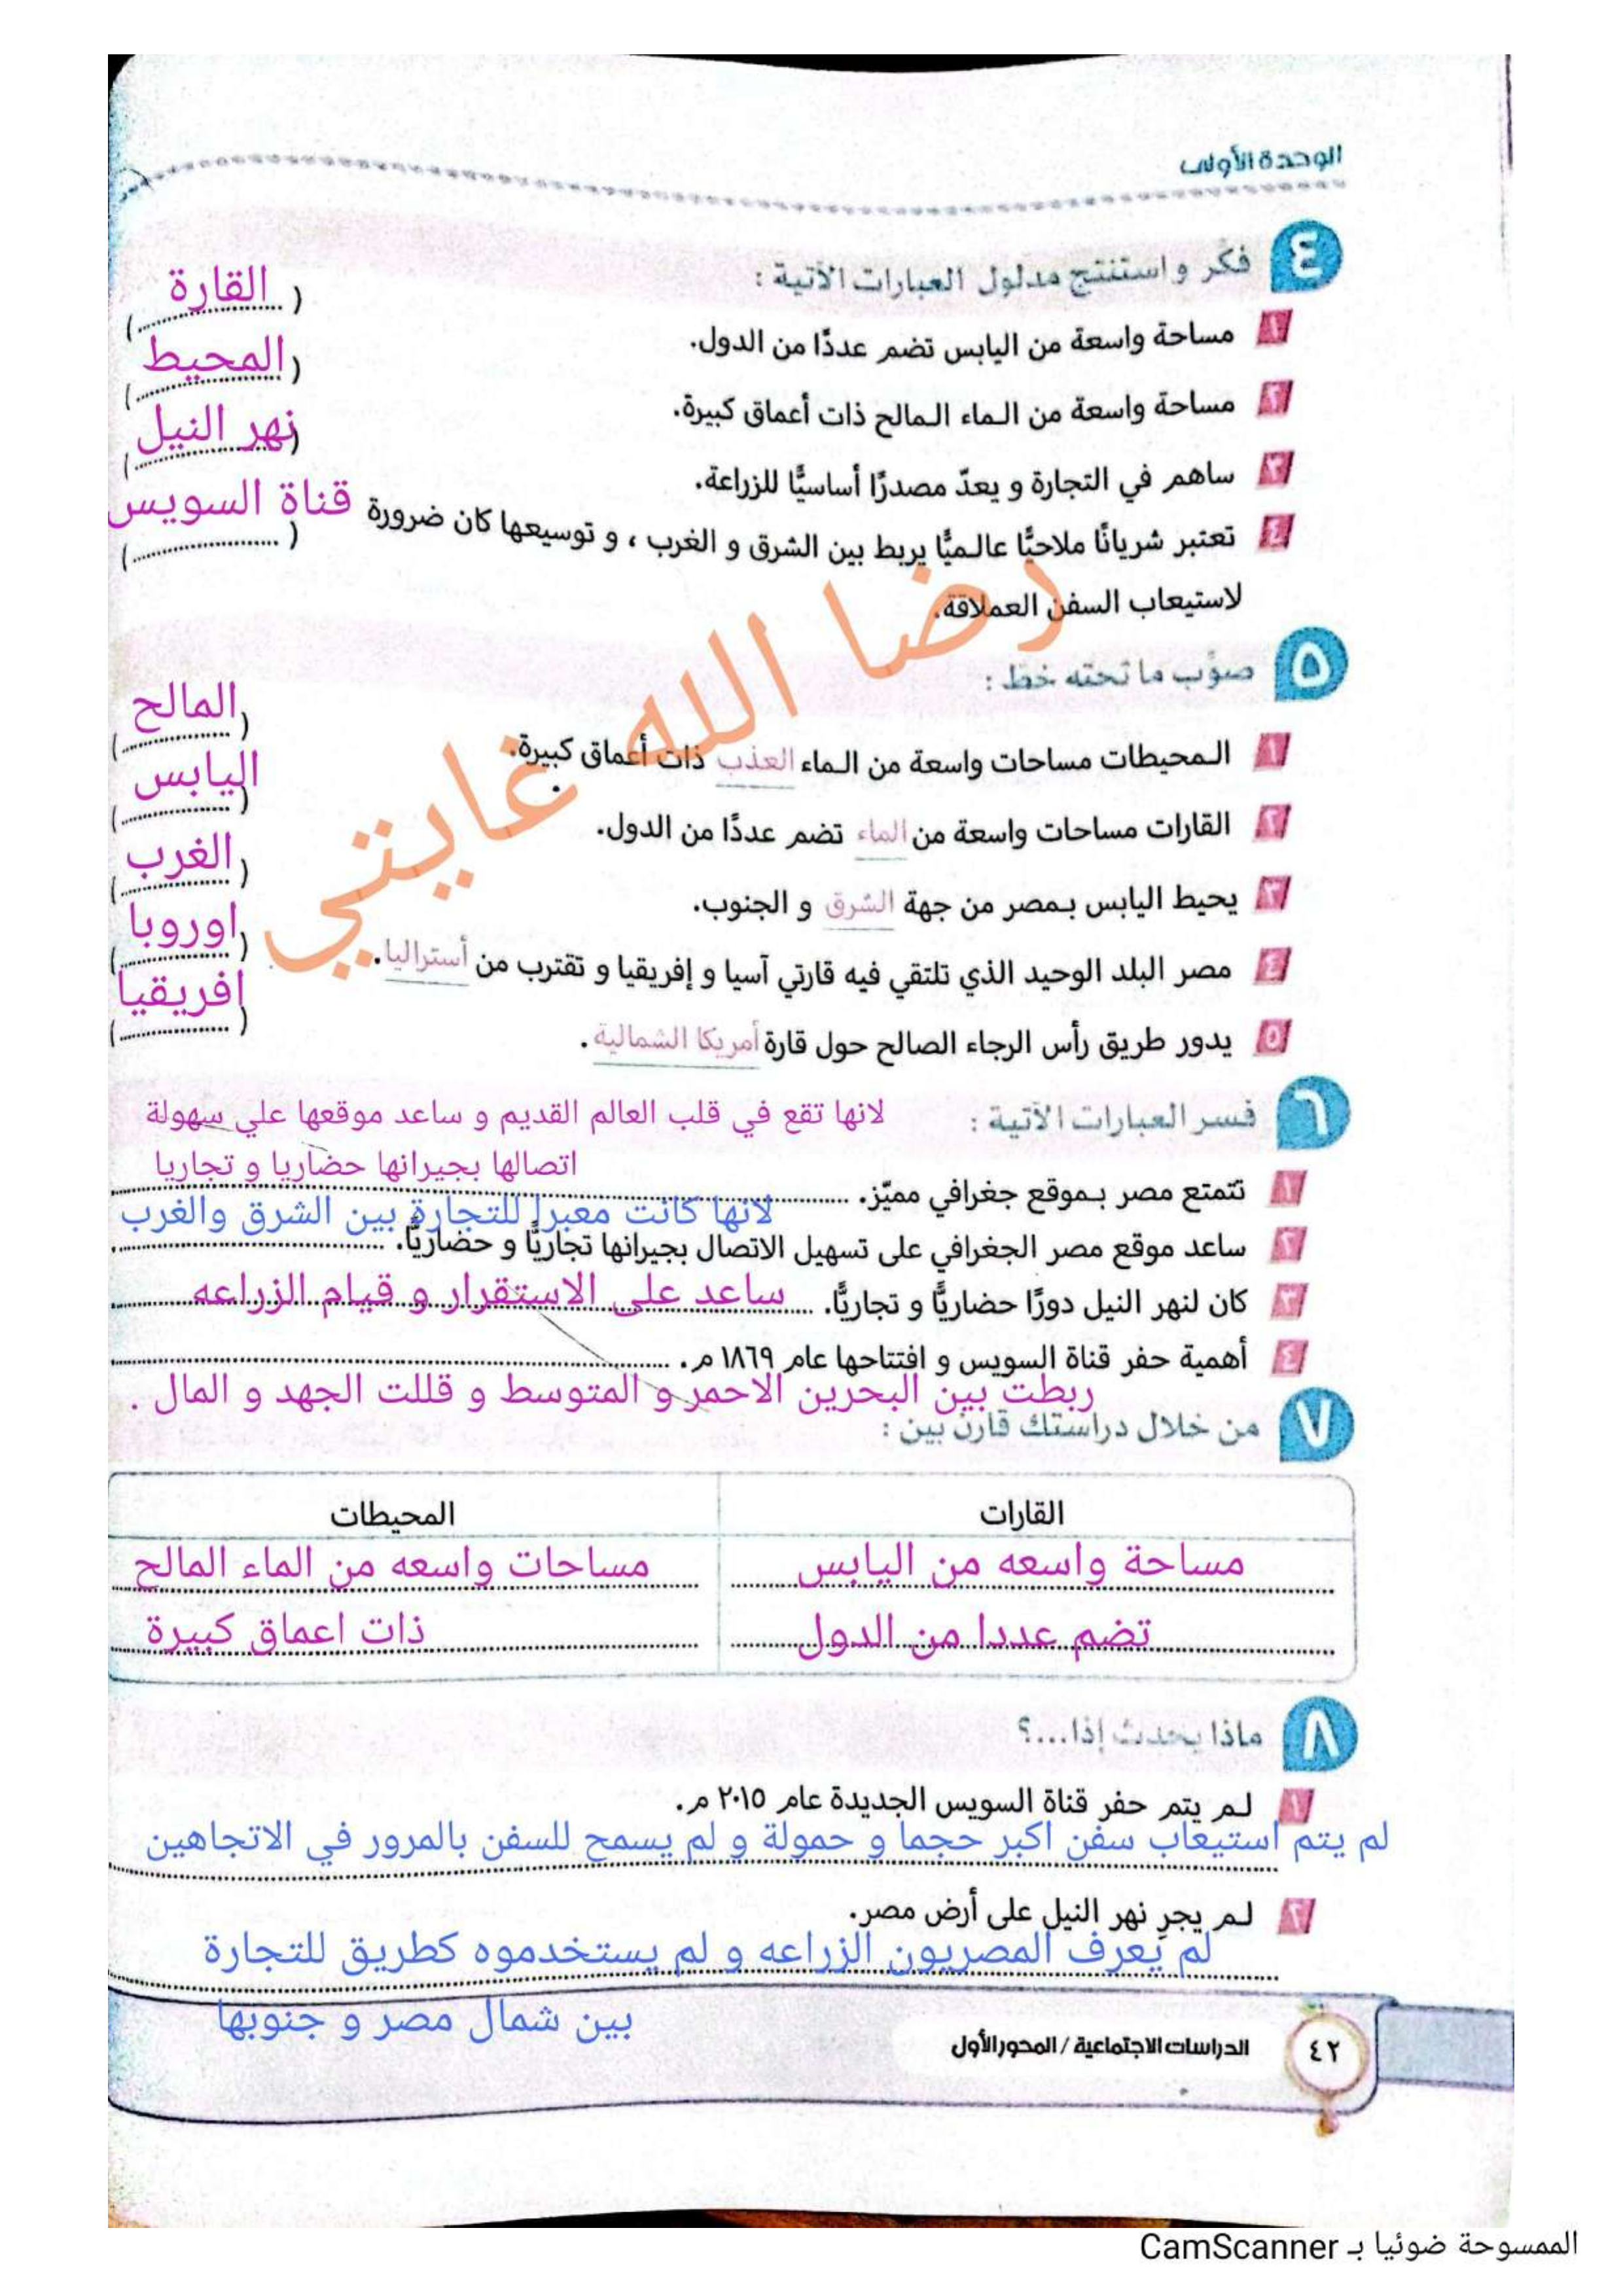 الوحدة الأولى
٤ فكر و استنتج مدلول العبارات الآتية :
١ مساحة واسعة من اليابس تضم عددًا من الدول. ( القارة )
٢ مساحة واسعة من الماء المالح ذات أعماق كبيرة. ( المحيط )
٣ ساهم في التجارة و يعدّ مصدرًا أساسيًّا للزراعة. ( نهر النيل )
٤ تعتبر شريانًا ملاحيًّا عالميًّا يربط بين الشرق و الغرب ، و توسيعها كان ضرورة ( قناة السويس )
لاستيعاب السفن العملاقة.
رضا الله غايتي
٥ صوّب ما تحته خط :
١ المحيطات مساحات واسعة من الماء العذب ذات أعماق كبيرة. ( المالح )
٢ القارات مساحات واسعة من الماء تضم عددًا من الدول. ( اليابس )
٣ يحيط اليابس بمصر من جهة الشرق و الجنوب. ( الغرب )
٤ مصر البلد الوحيد الذي تلتقي فيه قارتي آسيا و إفريقيا و تقترب من أستراليا. ( اوروبا )
٥ يدور طريق رأس الرجاء الصالح حول قارة أمريكا الشمالية. ( افريقيا )
٦ فسر العبارات الآتية : لانها تقع في قلب العالم القديم و ساعد موقعها علي سهولة
اتصالها بجيرانها حضاريا و تجاريا
١ تتمتع مصر بموقع جغرافي مميّز.
لانها كانت معبرا للتجارة بين الشرق والغرب
٢ ساعد موقع مصر الجغرافي على تسهيل الاتصال بجيرانها تجاريًّا و حضاريًّا.
٣ كان لنهر النيل دورًا حضاريًّا و تجاريًّا. ساعد على الاستقرار و قيام الزراعه
٤ أهمية حفر قناة السويس و افتتاحها عام ١٨٦٩ م.
ربطت بين البحرين الاحمر و المتوسط و قللت الجهد و المال .
٧ من خلال دراستك قارن بين :
القارات المحيطات
مساحة واسعه من اليابس مساحات واسعه من الماء المالح
تضم عددا من الدول ذات اعماق كبيرة
٨ ماذا يحدث إذا...؟
١ لم يتم حفر قناة السويس الجديدة عام ٢٠١٥ م.
لم يتم استيعاب سفن اكبر حجما و حمولة و لم يسمح للسفن بالمرور في الاتجاهين
٢ لم يجرِ نهر النيل على أرض مصر.
لم يعرف المصريون الزراعه و لم يستخدموه كطريق للتجارة
بين شمال مصر و جنوبها
٤٢ الدراسات الاجتماعية / المحور الأول
الممسوحة ضوئيا بـ CamScanner